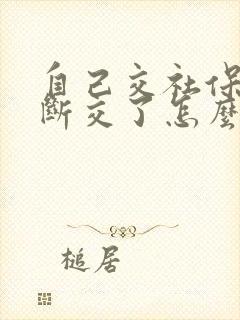 自己交社保
斷交了怎麼
槌居